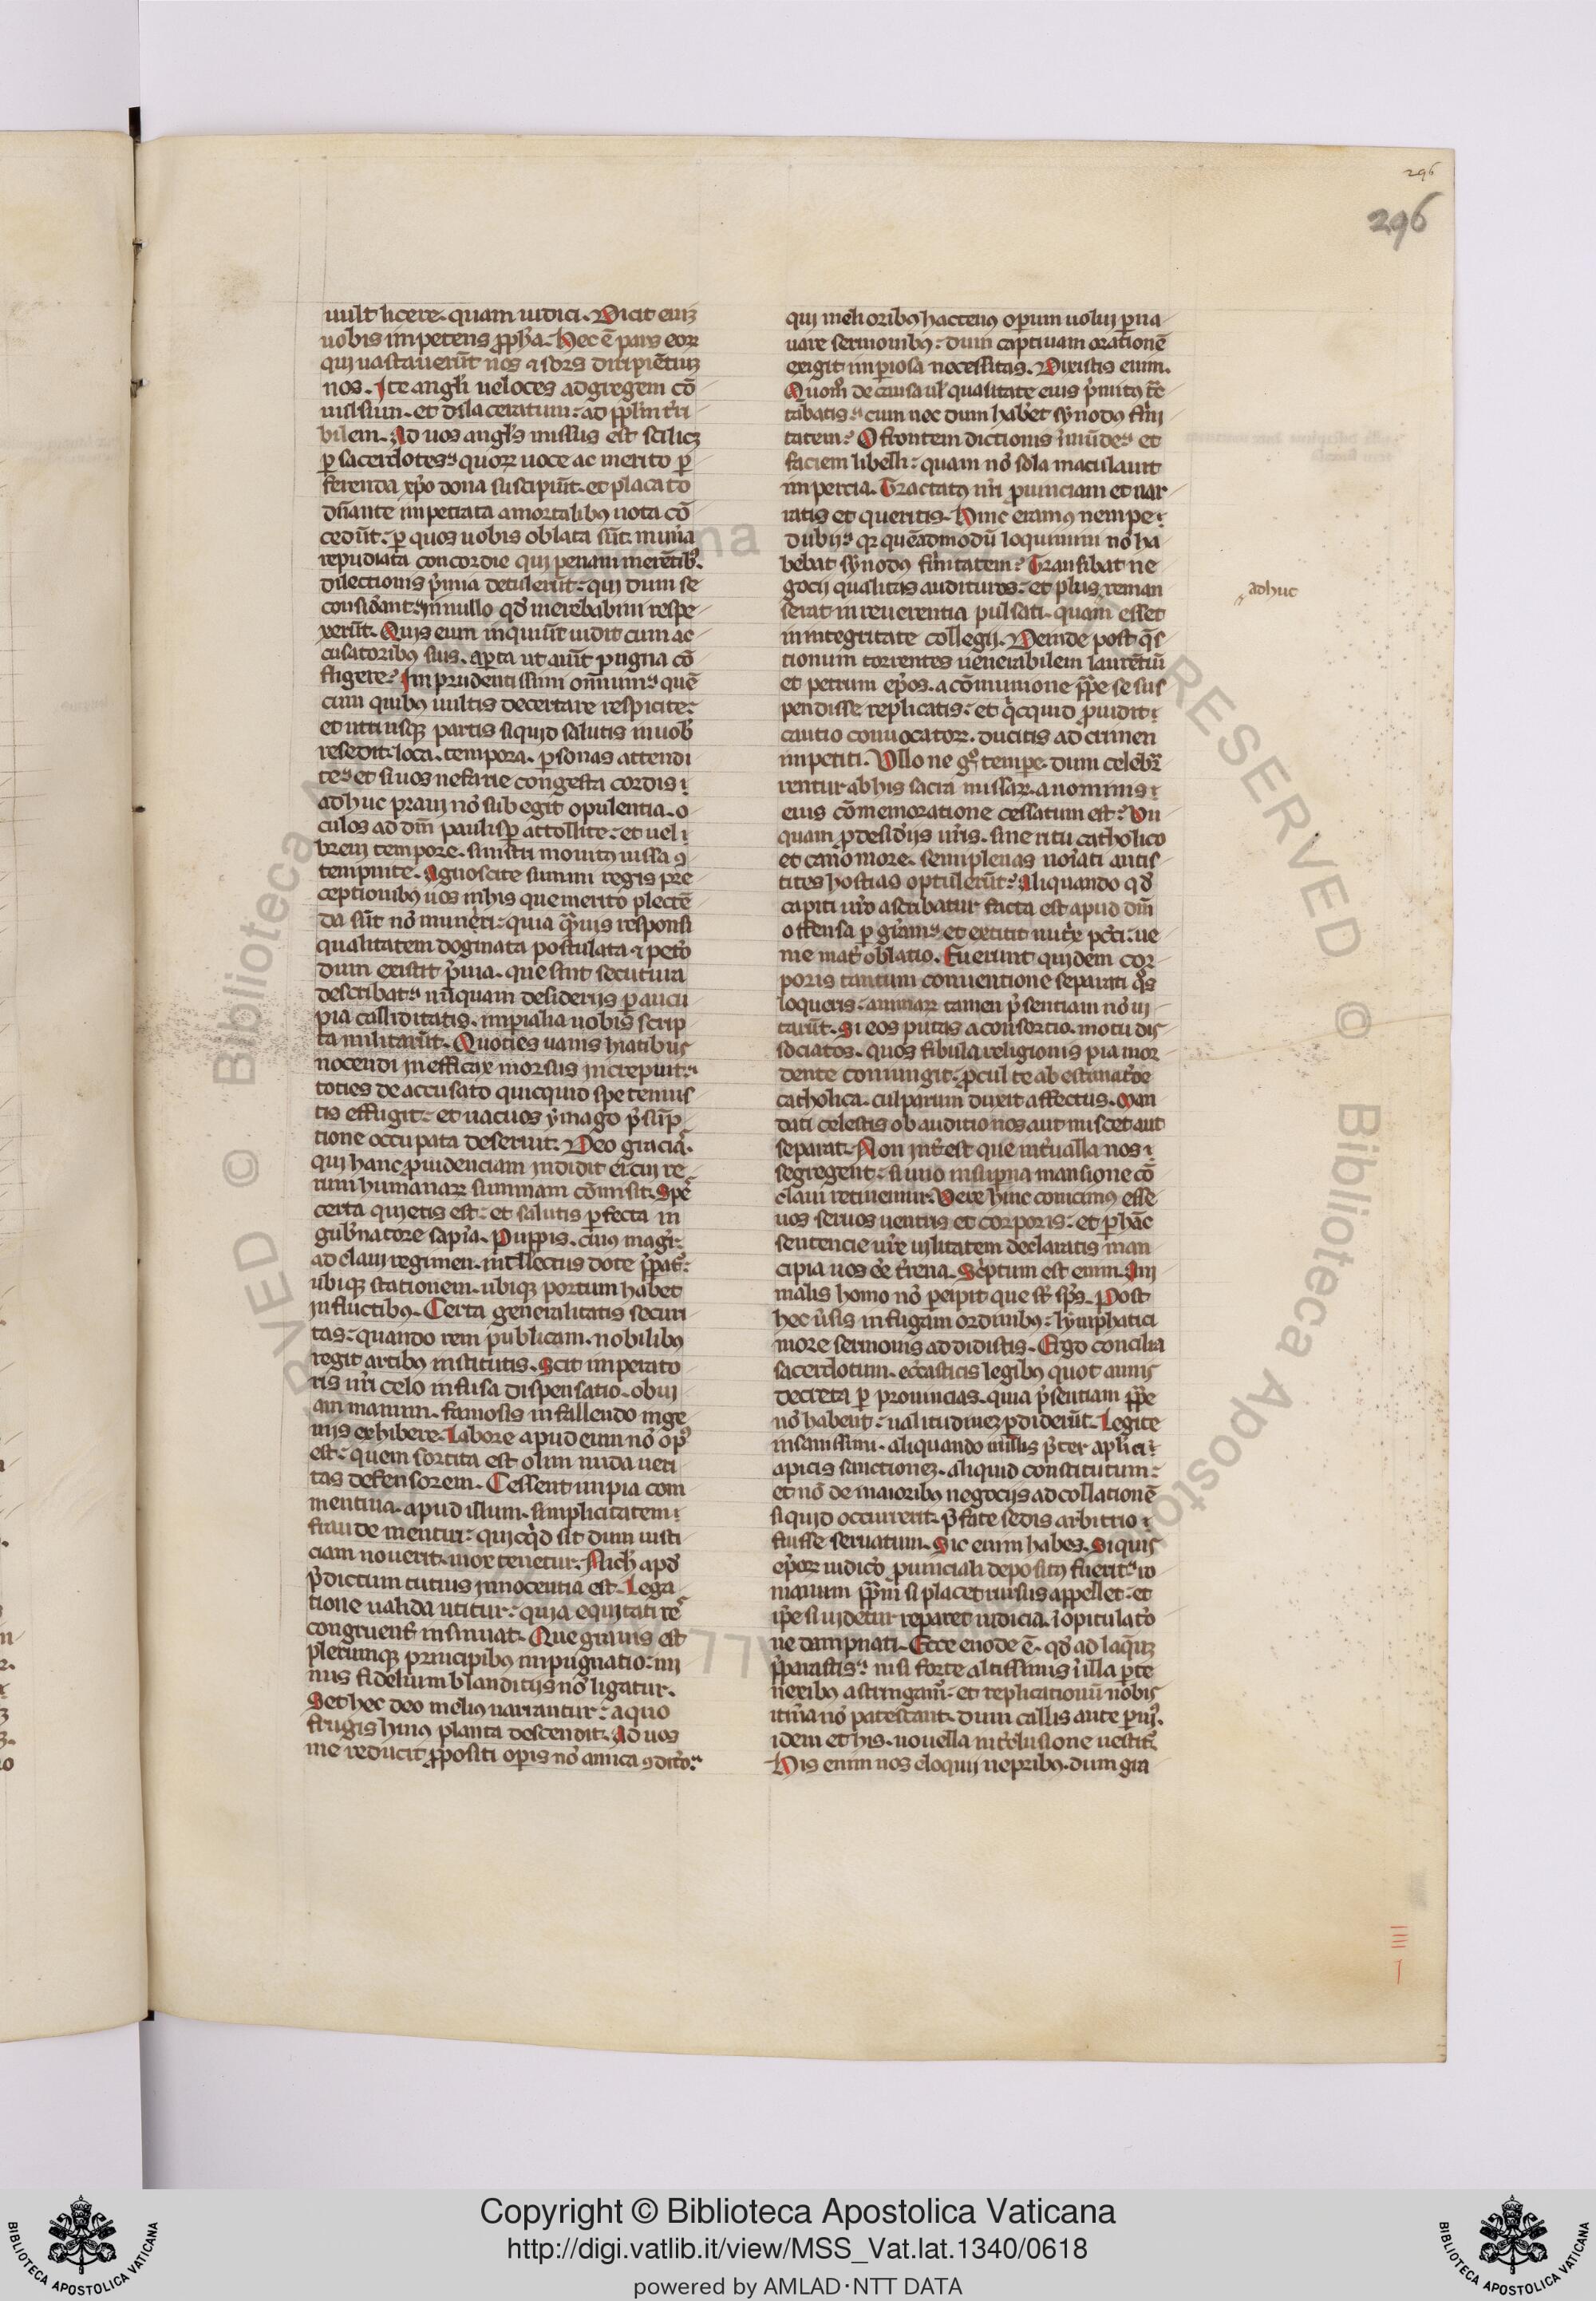 296
296
uult licere. quam iudici. Dicit enīȝ
uobis impetens ꝓph̄a. Hec ē pars eoꝝ
qui uastauerūt nos ⁊ sors diripiētiuȝ
nos. Ite angl̓i ueloces ad gregem cō
uulsum. et dila ceratum: ad pp̄lm t̓ri
bilem. Ad uos angl̓s missus est scilicȝ
ꝑ sacerdotes: quoꝝ uoce ac merito ꝑ
ferenda xp̄o dona suscipiūt. et placato
dn̄ante impetrata a mortalibꝰ uota cō
cedūt: ꝑ quos uobis oblata sūt mun̓a
repudiata concordie qui penam merētibꝰ.
dilectionis p̓mia detulerūt: qui dum se
consid̓ant: in nullo qd̓ merebamini respe
xerūt. Quis eum inquiūt uidit cum ac
cusatoribꝰ suis. aꝑta ut aiūt pugna cō
fligere? Imprudentissimi om̄ium: quē
cum quibꝰ uultis decertare respicite:
et utriusqꝫ partis siquid salutis in uob̓
resedit: loca. tempora. ꝑsonas attendi
te: et si uos nefarie congesta cordis
adhuc praui nō subegit opulentia. o
culos ad dm̄ paulisꝑ attollite: et uel
breui tempore. sinistri monitꝰ iussa ꝯ
tempnite. Agnoscite summi regis pre
ceptionibꝰ uos in his que merito plectē
da sūt nō muneri: quia qͣmuis responsi
qualitatem dogmata postulata ⁊ peto
dum existit p̓uia. que sint secutura
describat: nūquam desiderijs ꝑ aucu
pia calliditatis. imꝑialia uobis scrip
ta militarūt. Quoties uanis hiatibus
nocendi inefficax morsus increpuit:
toties de accusato quicquid spe tenuis
tis effugit: et uacuos ymago p̓sūp
tione occupata deseruit. Deo gracia.
qui hanc ꝓuidenciam indidit ei: cui re
rum humanaꝝ summam cōmisit. Spe
certa quietis est: et salutis ꝑfecta in
gub̓natore sap̓ia. Puppis. cuius magr̄
ad claui regimen. intellectus dote p̓pat̓:
ubiqꝫ stationem. ubiqꝫ portum habet
in fluctibꝰ. Certa generalitatis securi
tas: quando rem publicam. nobilibꝰ
regit artibꝰ institutis. Scit imperato
ris nr̄i celo infusa dispensatio. obui
am manum. famosis in fallendo inge
nijs exhibere. Labore apud eum nō opꝰ
est: quem sortita est olim nuda ueri
tas defensorem. Cessent impia com
mentiua. apud illum. simplicitatem
fraude mentiur: quicqͥd sit dum iusti
ciam nouerit. mox tenetur. Nich̓ apd̓
p̓dictum tutius innocentia est. Lega
tione ualida utitur: quia equitati re
congruent̓ insinuat. Que grauis est
plerumqꝫ principibꝰ impugnatio: mi
nus fidelium blanditijs nō ligatur.
Set hec deo melius narrantur: a quo
frugis huiꝰ planta descendit. Ad uos
me reducit ꝓpositi oꝑis nō amica ꝯdito:
qui melioribꝰ hactenꝰ oꝑum uolui ꝑna
uare sermonibꝰ: dum captiuam orationē
exigit imꝑiosa necessitas. Dixistis enim.
Quom̄ de causa ul̓ qualitate eius p̓mitꝰ t̓re
tabatis: cum nec dum hab̓et synodꝰ firmi
tatem? O frontem dictionis immūde: et
faciem libelli: quam nō sola maculauit
impericia. Tractatꝰ nr̄i ꝓuinciam et nar
ratis et queritis. Hinc eramꝰ nempe
dubij: qꝛ quēadmodū loquimini nō ha
bebat synodꝰ firmitatem? Transibat ne
gocij qualitas audituros: et plus reman
serat in reuerentia pulsati. quam esset
adhuc
in integritate collegij. Deinde post qͥs
tionum torrentes uenerabilem laurētiū
et petrum ep̄os. a cōmunione pp̄e se sus
pendisse replicatis: et qͥcquid ꝓuidit
cautio conuocatoꝝ. ducitis ad crimen
impetiti. Vllo ne gͦ tempe. dum celeb̓r
rentur ab his sacra missaꝝ. a nominis
eius cōmemoratione cessatum est? Vn
quam ꝓ desid̓ijs ur̄is. sine ritu catholico
et cano more. semiplenas uo̓iati antis
tites hostias optulerūt? Aliquando qd̓
capiti ur̄o ascribatur facta est apud dm̄
offensa ꝑ grām: et extitit nutr̓x pct̄i: ue
nie mat̓ oblatio. Fuerunt quidem cor
poris tantum conuentione separati qͦs
loqueris: animaꝝ tamen p̓sentiam nō ui
tarūt. Si eos putas a consortio. motu dis
sociatos. quos fibula religionis pia mor
dente coniungit: ꝓcul te ab estanat̓de
catholica. culparum duxit affectus. Man
dati celestis ob auditio nos aut miscet aut
separat. Non int̓est que int̓ualla nos
segregent: si uno in suꝑna mansione cō
claui retinemur. Vere hinc conicimꝰ esse
uos seruos uentris et corporis: et ꝑ hāc
sentencie ur̄e uilitatem declaratis man
cipia uos eē t̓rena. Sc̓ptum est enim. Ani
malis homo nō ꝑcipit que sūt sp̄s. Post
hec u̓sis in fugam ordinibꝰ: lymphatici
more sermonis addidistis. Ergo concilia
sacerdotum. eccl̓asticis legibꝰ quot annis
decreta ꝑ prouincias. quia p̓sentiam pp̄e
nō habent: ualitudineȝ ꝑdiderūt. Legite
insanissimi. aliquando in illis p̓ter apl̓ici
apicis sanctioneȝ. aliquid constitutum:
et nō de maioribꝰ negocijs ad collationē
siquid occurrerit. p̓fate sedis arbitrio
fuisse seruatum. Sic enim habes. Siquis
ep̄oꝝ iudicio ꝓuinciali depositꝰ fuerit: ro
manum pp̄m si placet rursus appellet: et
ip̄e si uidetur reparet iudicia. ⁊ opitulat̓o
ne dampnati. Ecce enode ē. qd̓ ad laqueȝ
p̓parastis: nisi forte altissimis ⁊ illa ꝑ te
nexibꝰ astringam̄: et replicationū nobis
itin̓a nō patescant. dum callis ante ꝑuiꝰ.
idem et his. nouella int̓clusione uestit̓.
His enim nos eloquij nepribꝰ. dum gra
Copyright © Biblioteca Apostolica Vaticana
http://digi.vatlib.it/view/MSS_Vat.lat.1340/0618
powered by AMLAD·NTT DATA
BIBLIOTECA APOSTOLICA VATICANA
BIBLIOTECA APOSTOLICA VATICANA